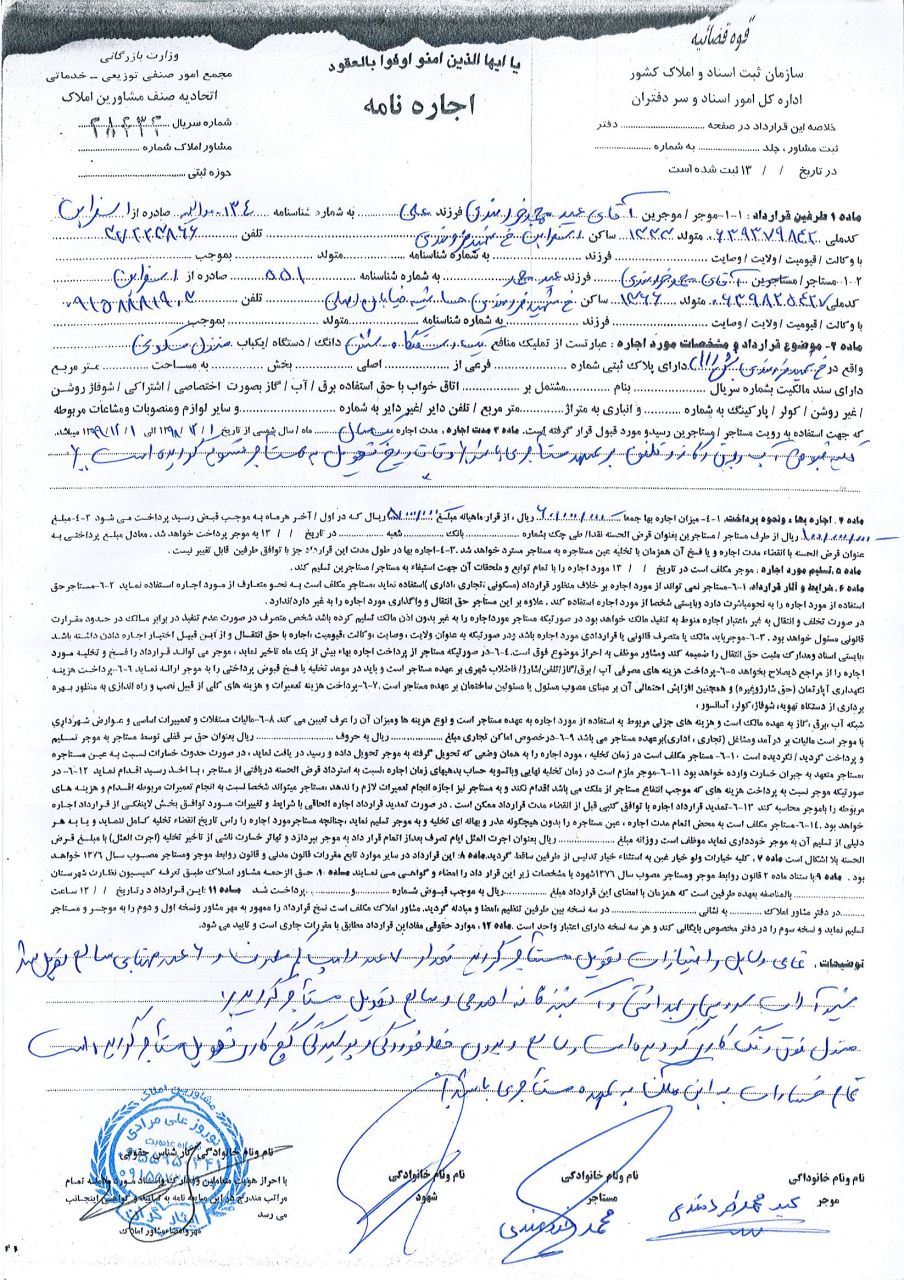 قوه قضائیه
سازمان ثبت اسناد و املاک کشور
اداره کل امور اسناد و سر دفتران
خلاصه این قرارداد در صفحه ........ دفتر
ثبت مشاور ، جلد ........ به شماره ........
در تاریخ / / ۱۳ ثبت شده است
یا ایها الذین امنو اوفوا بالعقود
اجاره نامه
وزارت بازرگانی
مجمع امور صنفی توزیعی - خدماتی
اتحادیه صنف مشاورین املاک
شماره سریال
مشاور املاک شماره ........
حوزه ثبتی ........
ماده ۱ طرفین قرارداد : ۱-۱-موجر / موجرین آقای عید محمد خردمندی فرزند علی به شماره شناسنامه ۱۳۴ صادره از اسفراین
کدملی ۰۶۳۹۳۷۹۸۴۲ متولد ۱۳۳۳ ساکن اسفراین خ تلفن ۳۷۲۲۳۸۶۶
با وکالت / قیومیت / ولایت / وصایت ........ فرزند ........ به شماره شناسنامه ........ متولد ........ بموجب ........
۱-۲ مستاجر/ مستاجرین آقای محمد خردمندی فرزند عید محمد به شماره شناسنامه ۵۵۱ صادره از اسفراین
کدملی متولد ۱۳۶۶ ساکن خ خیابان اصلی تلفن
با وکالت / قیومیت / ولایت / وصایت ........ فرزند ........ به شماره شناسنامه ........ متولد ........ بموجب ........
ماده ۲- موضوع قرارداد و مشخصات مورد اجاره : عبارتست از تملیک منافع یکدستگاه شش دانگ / دستگاه / یکباب منزل مسکونی
واقع در خ دارای پلاک ثبتی شماره ........ فرعی از ........ اصلی ........ بخش ........ به مساحت ........ متر مربع
دارای سند مالکیت بشماره سریال ........ بنام ........ مشتمل بر ........ اتاق خواب با حق استفاده برق / آب / گاز بصورت اختصاصی / اشتراکی / شوفاژ روشن
/ غیر روشن / کولر / پارکینگ به شماره ........ و انباری به متراژ ........ متر مربع / تلفن دایر /غیر دایر به شماره ........ و سایر لوازم و منصوبات و مشاعات مربوطه
که جهت استفاده به رویت مستاجر / مستاجرین رسیده و مورد قبول قرار گرفته است. ماده ۳ مدت اجاره ، مدت اجاره یکسال ماه / سال شمسی از تاریخ ۱۳۹۸/۱۲/۱ الی ۱۳۹۹/۱۲/۱ میباشد.
کلیه قبوض آب و برق و گاز و تلفن به عهده مستاجر تاریخ تحویل به مستاجر تسویه گردیده است
ماده ۴ ، اجاره بها ، ونحوه پرداخت. ۱-۴- میزان اجاره بها جمعا ۶۰/۰۰۰/۰۰۰ ریال ، از قرار ماهیانه مبلغ ۵/۰۰۰/۰۰۰ ریال که در اول / آخر هرماه به موجب قبض رسید پرداخت می شود ۲-۴-مبلغ
ریال از طرف مستاجر / مستاجرین بعنوان قرض الحسنه نقدا/ طی چک بشماره ........ بانک ........ شعبه ........ در تاریخ / / ۱۳ به موجر پرداخت خواهد شد. معادل مبلغ پرداختی به
عنوان قرض الحسنه با انقضاء مدت اجاره و یا فسخ آن همزمان با تخلیه عین مستاجره به مستاجر مسترد خواهد شد. ۳-۴-اجاره بها در طول مدت این قرارداد جز با توافق طرفین قابل تغییر نیست .
ماده ۵ ـتسلیم مورد اجاره : موجر مکلف است در تاریخ / / ۱۳ مورد اجاره را با تمام توابع و ملحقات آن جهت استیفاء به مستاجر/ مستاجرین تسلیم کند .
ماده ۶ ـ شرایط و آثار قرارداد. ۱-۶-مستاجر نمی تواند از مورد اجاره بر خلاف منظور قرارداد (مسکونی ،تجاری ،اداری )استفاده نماید ،مستاجر مکلف است به نحو متعارف از مورد اجاره استفاده نماید ۲-۶-مستاجر حق
استفاده از مورد اجاره را به نحومباشرت دارد وبایستی شخصا از مورد اجاره استفاده کند . علاوه بر این مستاجر حق انتقال و واگذاری مورد اجاره را به غیر دارد/ندارد .
در صورت تخلف و انتقال به غیر اعتبار اجاره منوط به تنفیذ مالک خواهد بود در صورتیکه مستاجر مورداجاره را به غیر بدون اذن مالک تسلیم کرده باشد شخص متصرف در صورت عدم تنفیذ در برابر مالک در حدود مقررات
قانونی مسئول خواهد بود . ۳-۶-موجرباید مالک یا متصرف قانونی یا قراردادی مورد اجاره باشد ودر صورتیکه به عنوان ولایت ، وصایت ،وکالت ،قیومیت ،اجاره با حق انتقال و از این قبیل اختیار اجاره دادن داشته باشد
،بایستی اسناد ومدارک مثبت حق انتقال را ضمیمه کند ومشاور موظف به احراز موضوع فوق است .۴-۶-در صورتیکه مستاجر از پرداخت اجاره بهاء بیش از یک ماه تاخیر نماید ، موجر می تواند قرارداد را فسخ و تخلیه مورد
اجاره را از مراجع ذیصلاح بخواهد ۵-۶-پرداخت هزینه های مصرفی آب / برق/گاز/تلفن/شارژ/ فاضلاب شهری بر عهده مستاجر است و باید در موعد تخلیه یا فسخ قبوض پرداختی را به موجر ارائه نماید ۶-۶-پرداخت هزینه
نگهداری آپارتمان (حق شارژوغیره) و همچنین افزایش احتمالی آن بر مبنای مصوب مسئول یا مسئولین ساختمان بر عهده مستاجر است . ۷-۶-پرداخت هزینه تعمیرات و هزینه های کلی از قبیل نصب و راه اندازی به منظور بهره
برداری از دستگاه تهویه، شوفاژ،کولر، آسانسور ،
شبکه آب ،برق ،گاز به عهده مالک است و هزینه های جزئی مربوط به استفاده از مورد اجاره به عهده مستاجر است و نوع هزینه ها ومیزان آن را عرف تعیین می کند ۸-۶-مالیات مستغلات و تعمیرات اساسی و عوارض شهرداری
با موجر است مالیات بر درآمد ومشاغل (تجاری ، اداری)برعهده مستاجر می باشد ۹-۶-درخصوص اماکن تجاری مبلغ ........ ریال به حروف ........ ریال بعنوان حق سر قفلی توسط مستاجر به موجر تسلیم
و پرداخت گردید / نگردیده است ۱۰-۶-مستاجر مکلف است در زمان تخلیه ، مورد اجاره را به همان وضعی که تحویل گرفته به موجر تحویل داده و رسید دریافت نماید ، در صورت حدوث خسارات نسبت به عین مستاجره
،مستاجر متعهد به جبران خسارت وارده خواهد بود ۱۱-۶-موجر ملزم است در زمان تخلیه نهایی وباتسویه حساب بدهیهای زمان اجاره ،نسبت به استرداد قرض الحسنه دریافتی از مستاجر ، با اخذ رسید اقدام نماید ۱۲-۶-در
صورتیکه موجر نسبت به پرداخت هزینه های که موجب انتفاع مستاجر از ملک می باشد اقدام نکند و به مستاجر نیز اجازه انجام تعمیرات لازم را ندهد، مستاجر میتواند شخصا نسبت به انجام تعمیرات مربوطه اقدام و هزینه های
مربوطه را باموجر محاسبه کند ۱۳-۶-تمدید قرارداد اجاره با توافق کتبی قبل از انقضاء مدت قرارداد ممکن است . در صورت تمدید قرارداد اجاره الحاقی با شرایط و تغییرات مورد توافق بخش لاینفکی از قرارداد اجاره
خواهد بود .۱۴-۶-مستاجر مکلف است به محض اتمام مدت اجاره ، عین مستاجره را بدون هیچگونه عذر و بهانه ای تخلیه و به موجر تسلیم نماید ،چنانچه مستاجر مورد اجاره را راس تاریخ انقضاء تخلیه کامل ننماید و یا به هر
دلیلی از تسلیم آن به موجر خودداری نماید موظف است روزانه مبلغ ........ ریال بعنوان اجرت المثل ایام تصرف بعداز اتمام قرار داد به موجر بپردازد و تهاتر خسارت ناشی از تاخیر تخلیه (اجرت المثل) با مبلغ قرض
الحسنه بلا اشکال است ماده ۷ ، کلیه خیارات ولو خیار غبن به استثناء خیار تدلیس از طرفین ساقط گردید.ماده ۸: این قرارداد در سایر موارد تابع مقررات قانون مدنی و قانون روابط موجر ومستاجر مصوب سال ۱۳۷۶ خواهد
بود . ماده ۹ باستناد ماده ۲ قانون روابط موجر ومستاجر مصوب سال ۱۳۷۶شهود با مشخصات زیر این قرار داد را امضاء و گواهی می نمایند ماده ۱۰. حق الزحمه مشاور املاک طبق تعرفه کمیسیون نظارت شهرستان
........ بالمناصفه بعهده طرفین است که همزمان با امضاء این قرارداد مبلغ ........ ریال به موجب قبض شماره ........ پرداخت شد. ماده ۱۱ ،این قرارداد در تاریخ / / ۱۳ ساعت
........ در دفتر مشاور املاک ........ به نشانی ........ در سه نسخه بین طرفین تنظیم ،امضا و مبادله گردید. مشاور املاک مکلف است نسخ قرارداد را ممهور به مهر مشاور ونسخه اول و دوم را به موجر و مستاجر
تسلیم نماید و نسخه سوم را در دفتر مخصوص بایگانی کند و هر سه نسخه دارای اعتبار واحد است . ماده ۱۲. موارد حقوقی مفاداین قرارداد مطابق با مقررات جاری است و تایید می شود.
توضیحات . تمامی وسایل و امتیازات تحویل مستاجر گردید تعداد ۷ عدد لامپ کم مصرف و ۶ عدد مهتابی سالم تحویل شد
شیر آلات سرویس بهداشتی و آشپزخانه سالم تحویل مستاجر گردید
منزل فوق رنگ کاری گردیده است و سالم و بدون خط خوردگی و بریدگی گچ کاری تحویل مستاجر گردیده است
تمام خسارات به این مکان به عهده مستاجر می باشد
نام ونام خانودگی
موجر
عید محمد خردمندی
نام ونام خانوادگی
مستاجر
محمد خردمندی
نام ونام خانوادگی
شهود
نام ونام خانوادگی کارشناس حقوقی
با احراز هویت متعاملین و مدارک و اسناد مورد معامله تمام
مراتب مندرج در این مبایعه نامه به تایید و گواهی اینجانب
می رسد
مهر و امضاء مشاور املاک
مشاورین املاک
نوروز علی مرادی
شماره عضویت